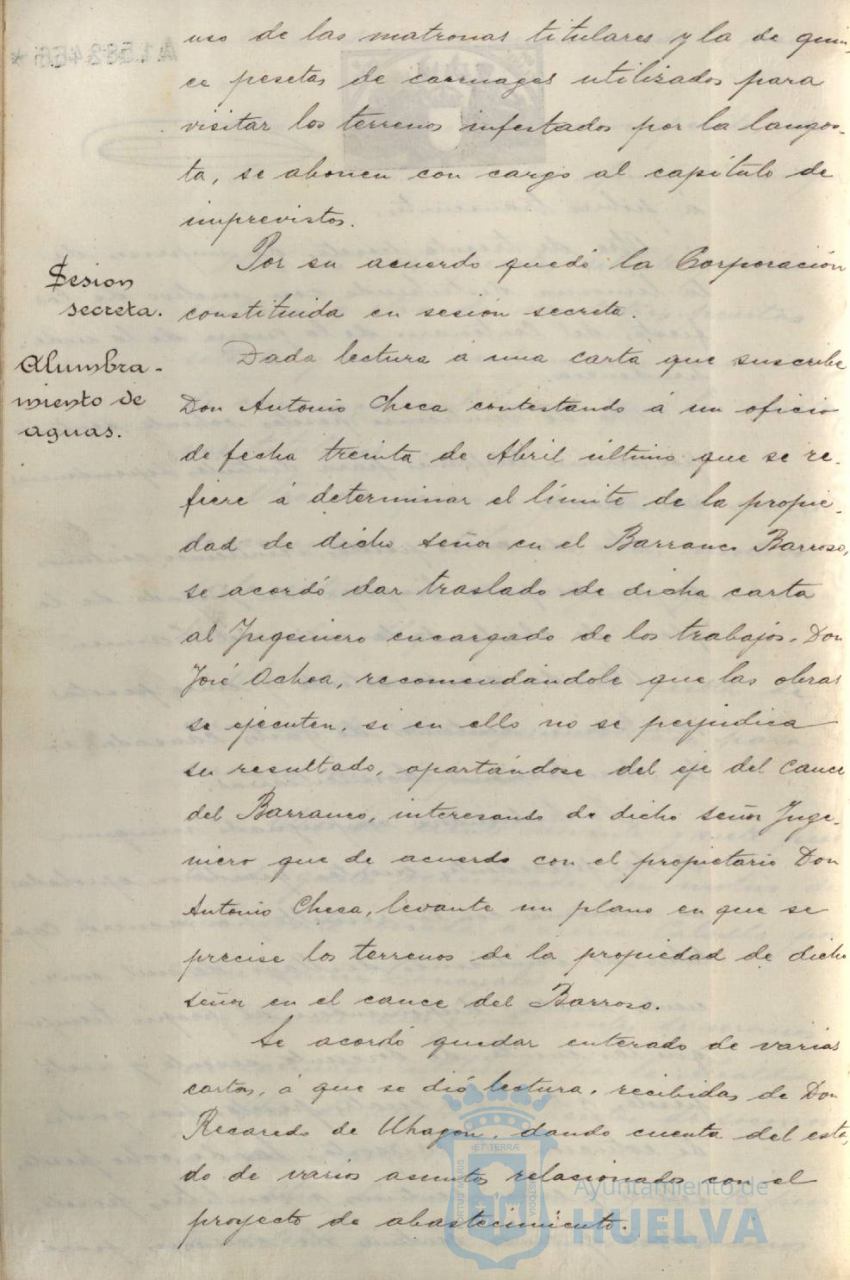 uso de las matronas titulares y la de quin-
ce pesetas de carruages utilizados para
visitar los terrenos infestados por la langos-
ta, se abonen con cargo al capítulo de
imprevistos.
Sesion
secreta.
Por su acuerdo quedó la Corporación
constituida en sesión secreta.
Alumbra-
miento de
aguas.
Dada lectura á una carta que suscribe
Don Antonio Checa contestando á un oficio
de fecha treinta de Abril último que se re-
fiere á determinar el límite de la propie-
dad de dicho señor en el Barranco Barroso,
se acordó dar traslado de dicha carta
al Ingeniero encargado de los trabajos, Don
José Ochoa, recomendándole que las obras
se ejecuten, si en ello no se perjudica
su resultado, apartándose del eje del cauce
del Barranco, interesando de dicho señor Inge-
niero que de acuerdo con el propietario Don
Antonio Checa, levante un plano en que se
precise los terrenos de la propiedad de dicho
señor en el cauce del Barroso.
Se acordó quedar enterado de varias
cartas, á que se dió lectura, recibidas de Don
Recaredo de Uhagón, dando cuenta del esta-
do de varios asuntos relacionados con el
proyecto de abastecimiento.
Ayuntamiento de
HUELVA